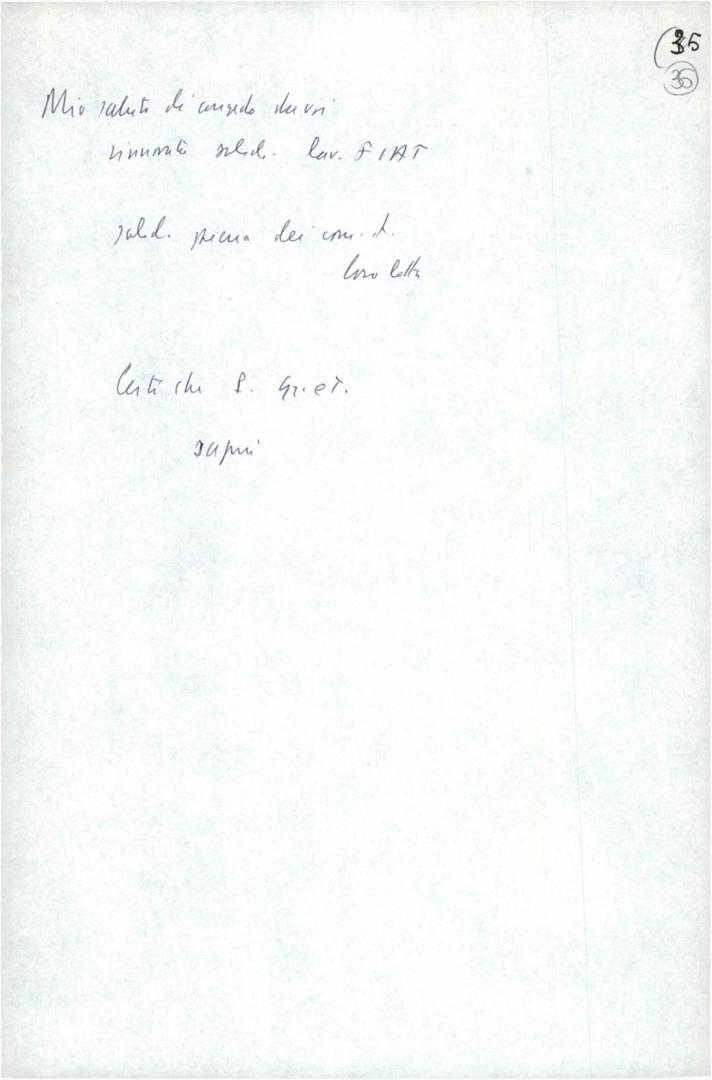 35
35
Mio saluto di congedo da voi
rinnovata solid. lav. FIAT
solid. piena dei com.
loro lotta
Certi che S.
saprà